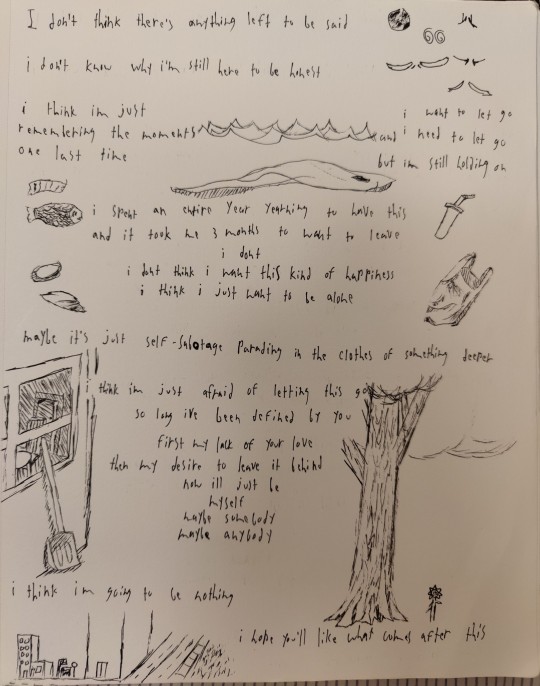 I don't think there's anything left to be said
i don't know why i'm still here to be honest
i think im just
remembering the moments
one last time
i want to let go
and i need to let go
but im still holding on
i spent an entire year yearning to have this
and it took me 3 months to want to leave
i dont
i dont think i want this kind of happiness
i think i just want to be alone
maybe it's just self-sabotage parading in the clothes of something deeper
i think im just afraid of letting this go
so long ive been defined by you
first my lack of your love
then my desire to leave it behind
now ill just be
myself
maybe somebody
maybe anybody
i think im going to be nothing
i hope you'll like what comes after this